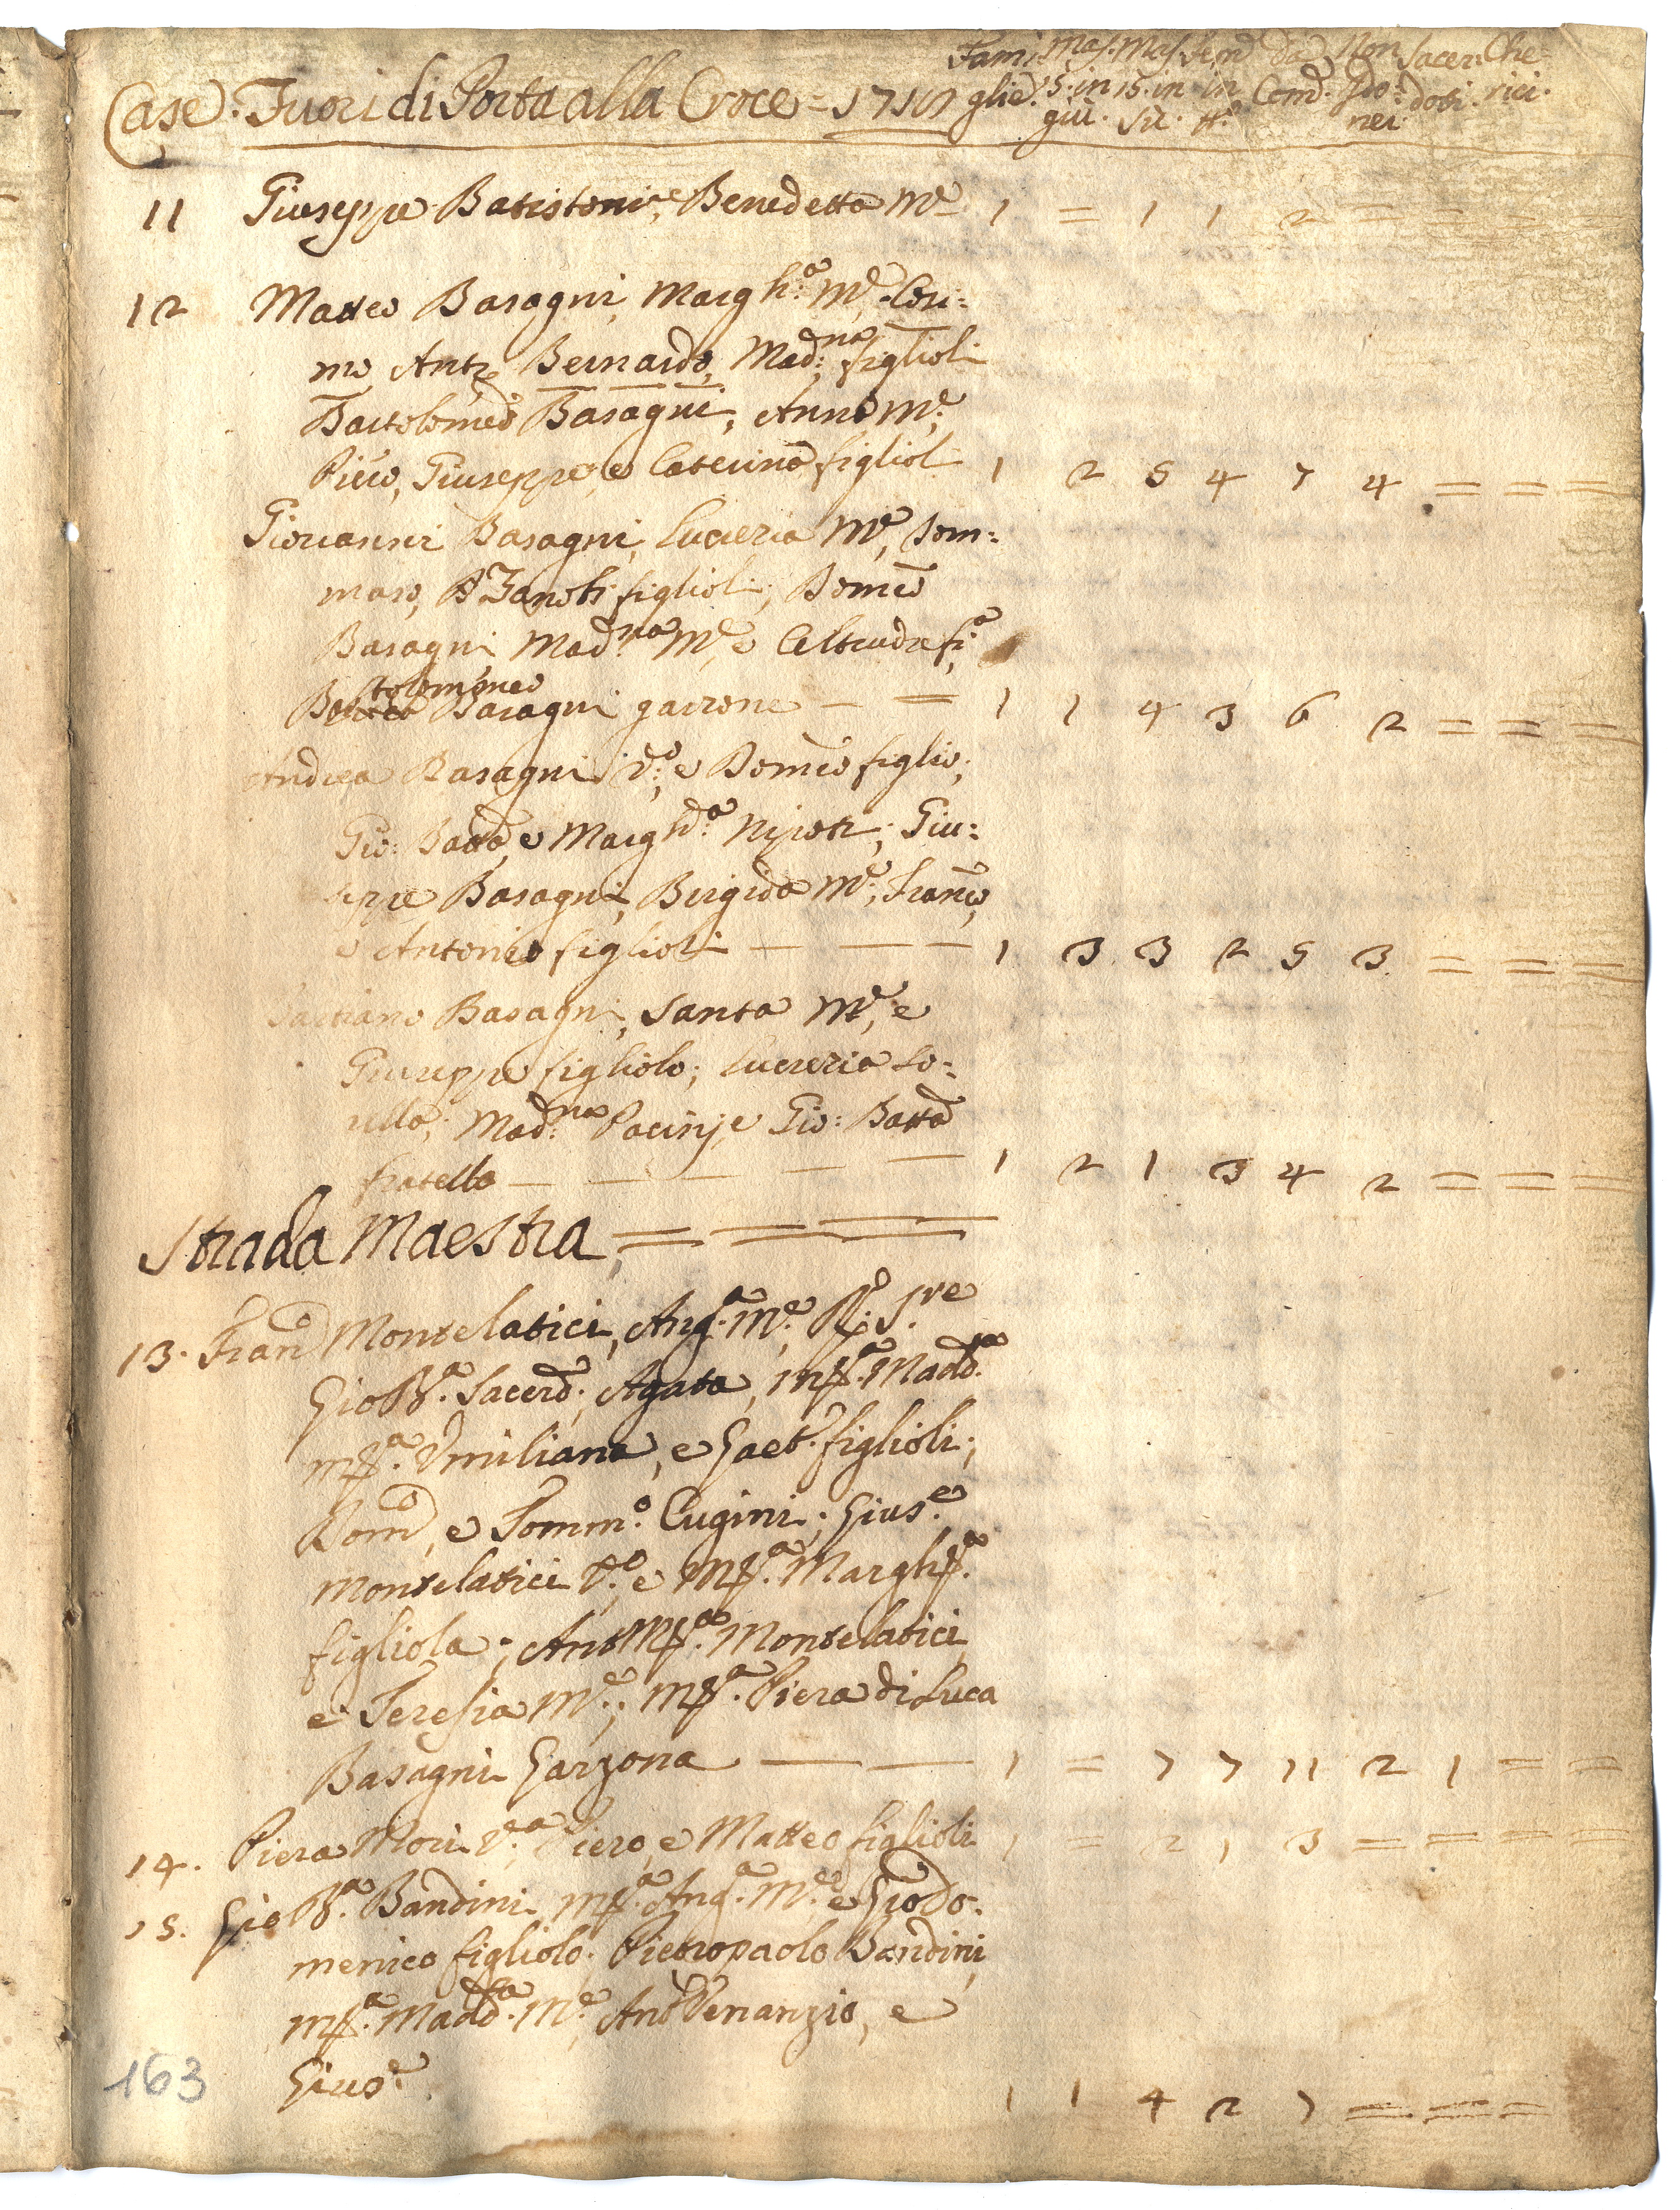 Fami: Mas. Mas. Fem̃ da Non Sacer: Che=
Case: Fuori di Porta alla Croce = 1710 glie. 15. in 15. in in Com̃. Ido= doti. rici.
giù. sù. tt.º nei.
11 Giuseppe Batistoni, e Benedetta M.e 1 = 1 1 2 = = = =
12 Matteo Basagni, Margh.a M.e, Cosi=
mo, Ant.o, Bernardo, Mad:na figlioli
Bartolomeo Basagni, Anna M.e,
Piero, Giuseppe, e Caterina figlioli 1 2 5 4 7 4 = = =
Giovanni Basagni, Lucrezia M.e, Tom=
maso, Zanobi figlioli; Domco
Basagni Mad:na M.e, e Altruda fi.a
Bartolommeo
Basagni garzone — = 1 1 4 3 6 2 = = =
Andrea Basagni V.o, e Domco figlio;
Gio: Batta, e Margh.a Nipoti; Giu=
seppe Basagni, Brigida M.e, Franco,
e Antonio figlioli — — — 1 3 3 2 5 3 = = =
Bastiano Basagni, Santa M.e, e
Giuseppe figliolo; Lucrezia so=
rella; Mad:na Pacini, e Gio: Batta
fratello — — — — — 1 2 1 3 4 2 = = =
Strada Maestra, = = =
13. Fran.co Montelatici, Ang.a M.e, P. Pre
Gio B.a Sacerd.; Agata, Mª. Madd.na
Mª. Umiliana, e Gaet. figlioli;
Dom.co, e Tomm.o Cugini; Gius.e
Montelatici V.o, e Mª. Margh.a
figliola; Ant Mª. Montelatici
e Teresia M.e; Mª. Piera di Luca
Basagni Garzona — — 1 = 7 7 11 2 1 = =
14. Piera Mori V.a, Piero, e Matteo figlioli 1 = 2 1 3 = = = =
15. Gio B.a Bandini, Mª. Ang.a M.e, e Giodo=
menico figliolo; Pietropaolo Bandini,
Mª. Madd.na M.e, Ant Venanzio, e
Gius.e 1 1 4 2 7 = = =
163